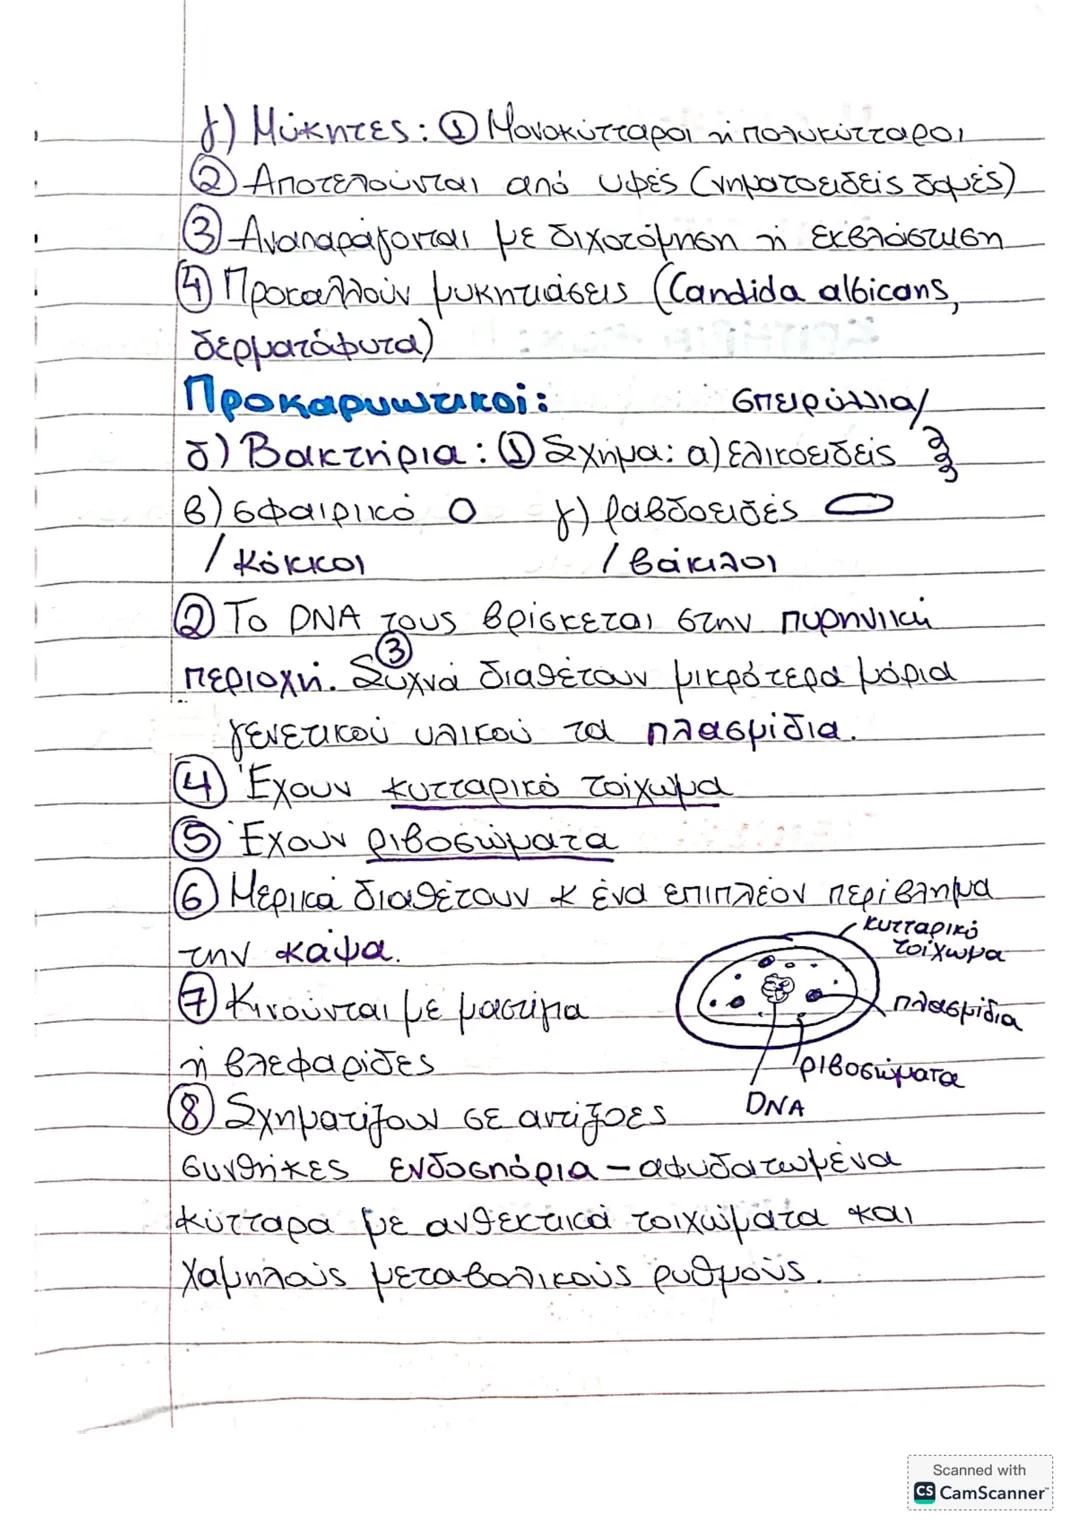 γ) Μύκητες: ① Μονοκύτταροι ή πολυκύτταροι
② Αποτελούνται από υφές (νηματοειδείς δομές)
③ Αναπαράγονται με διχοτόμηση ή εκβλάστηση
④ Προκαλλούν μυκητιάσεις (Candida albicans,
δερματόφυτα)
Προκαρυωτικοί:
σπειρύλλια/
δ) Βακτήρια: ① Σχήμα: α) ελικοειδείς
β) σφαιρικό γ) ραβδοειδές
/ κόκκοι / βάκιλοι
② Το DNA τους βρίσκεται στην πυρηνική
περιοχή. ③ Συχνά διαθέτουν μικρότερα μόρια
γενετικού υλικού τα πλασμίδια.
④ Έχουν κυτταρικό τοίχωμα
⑤ Έχουν ριβοσώματα
⑥ Μερικά διαθέτουν κ ένα επιπλέον περίβλημα
την κάψα.
κυτταρικό
τοίχωμα
⑦ Κινούνται με μαστίγια
πλασμίδια
ή βλεφαρίδες
ριβοσώματα
DNA
⑧ Σχηματίζουν σε αντίξοες
συνθήκες ενδοσπόρια - αφυδατωμένα
κύτταρα με ανθεκτικά τοιχώματα και
χαμηλούς μεταβολικούς ρυθμούς.
Scanned with
CS CamScanner